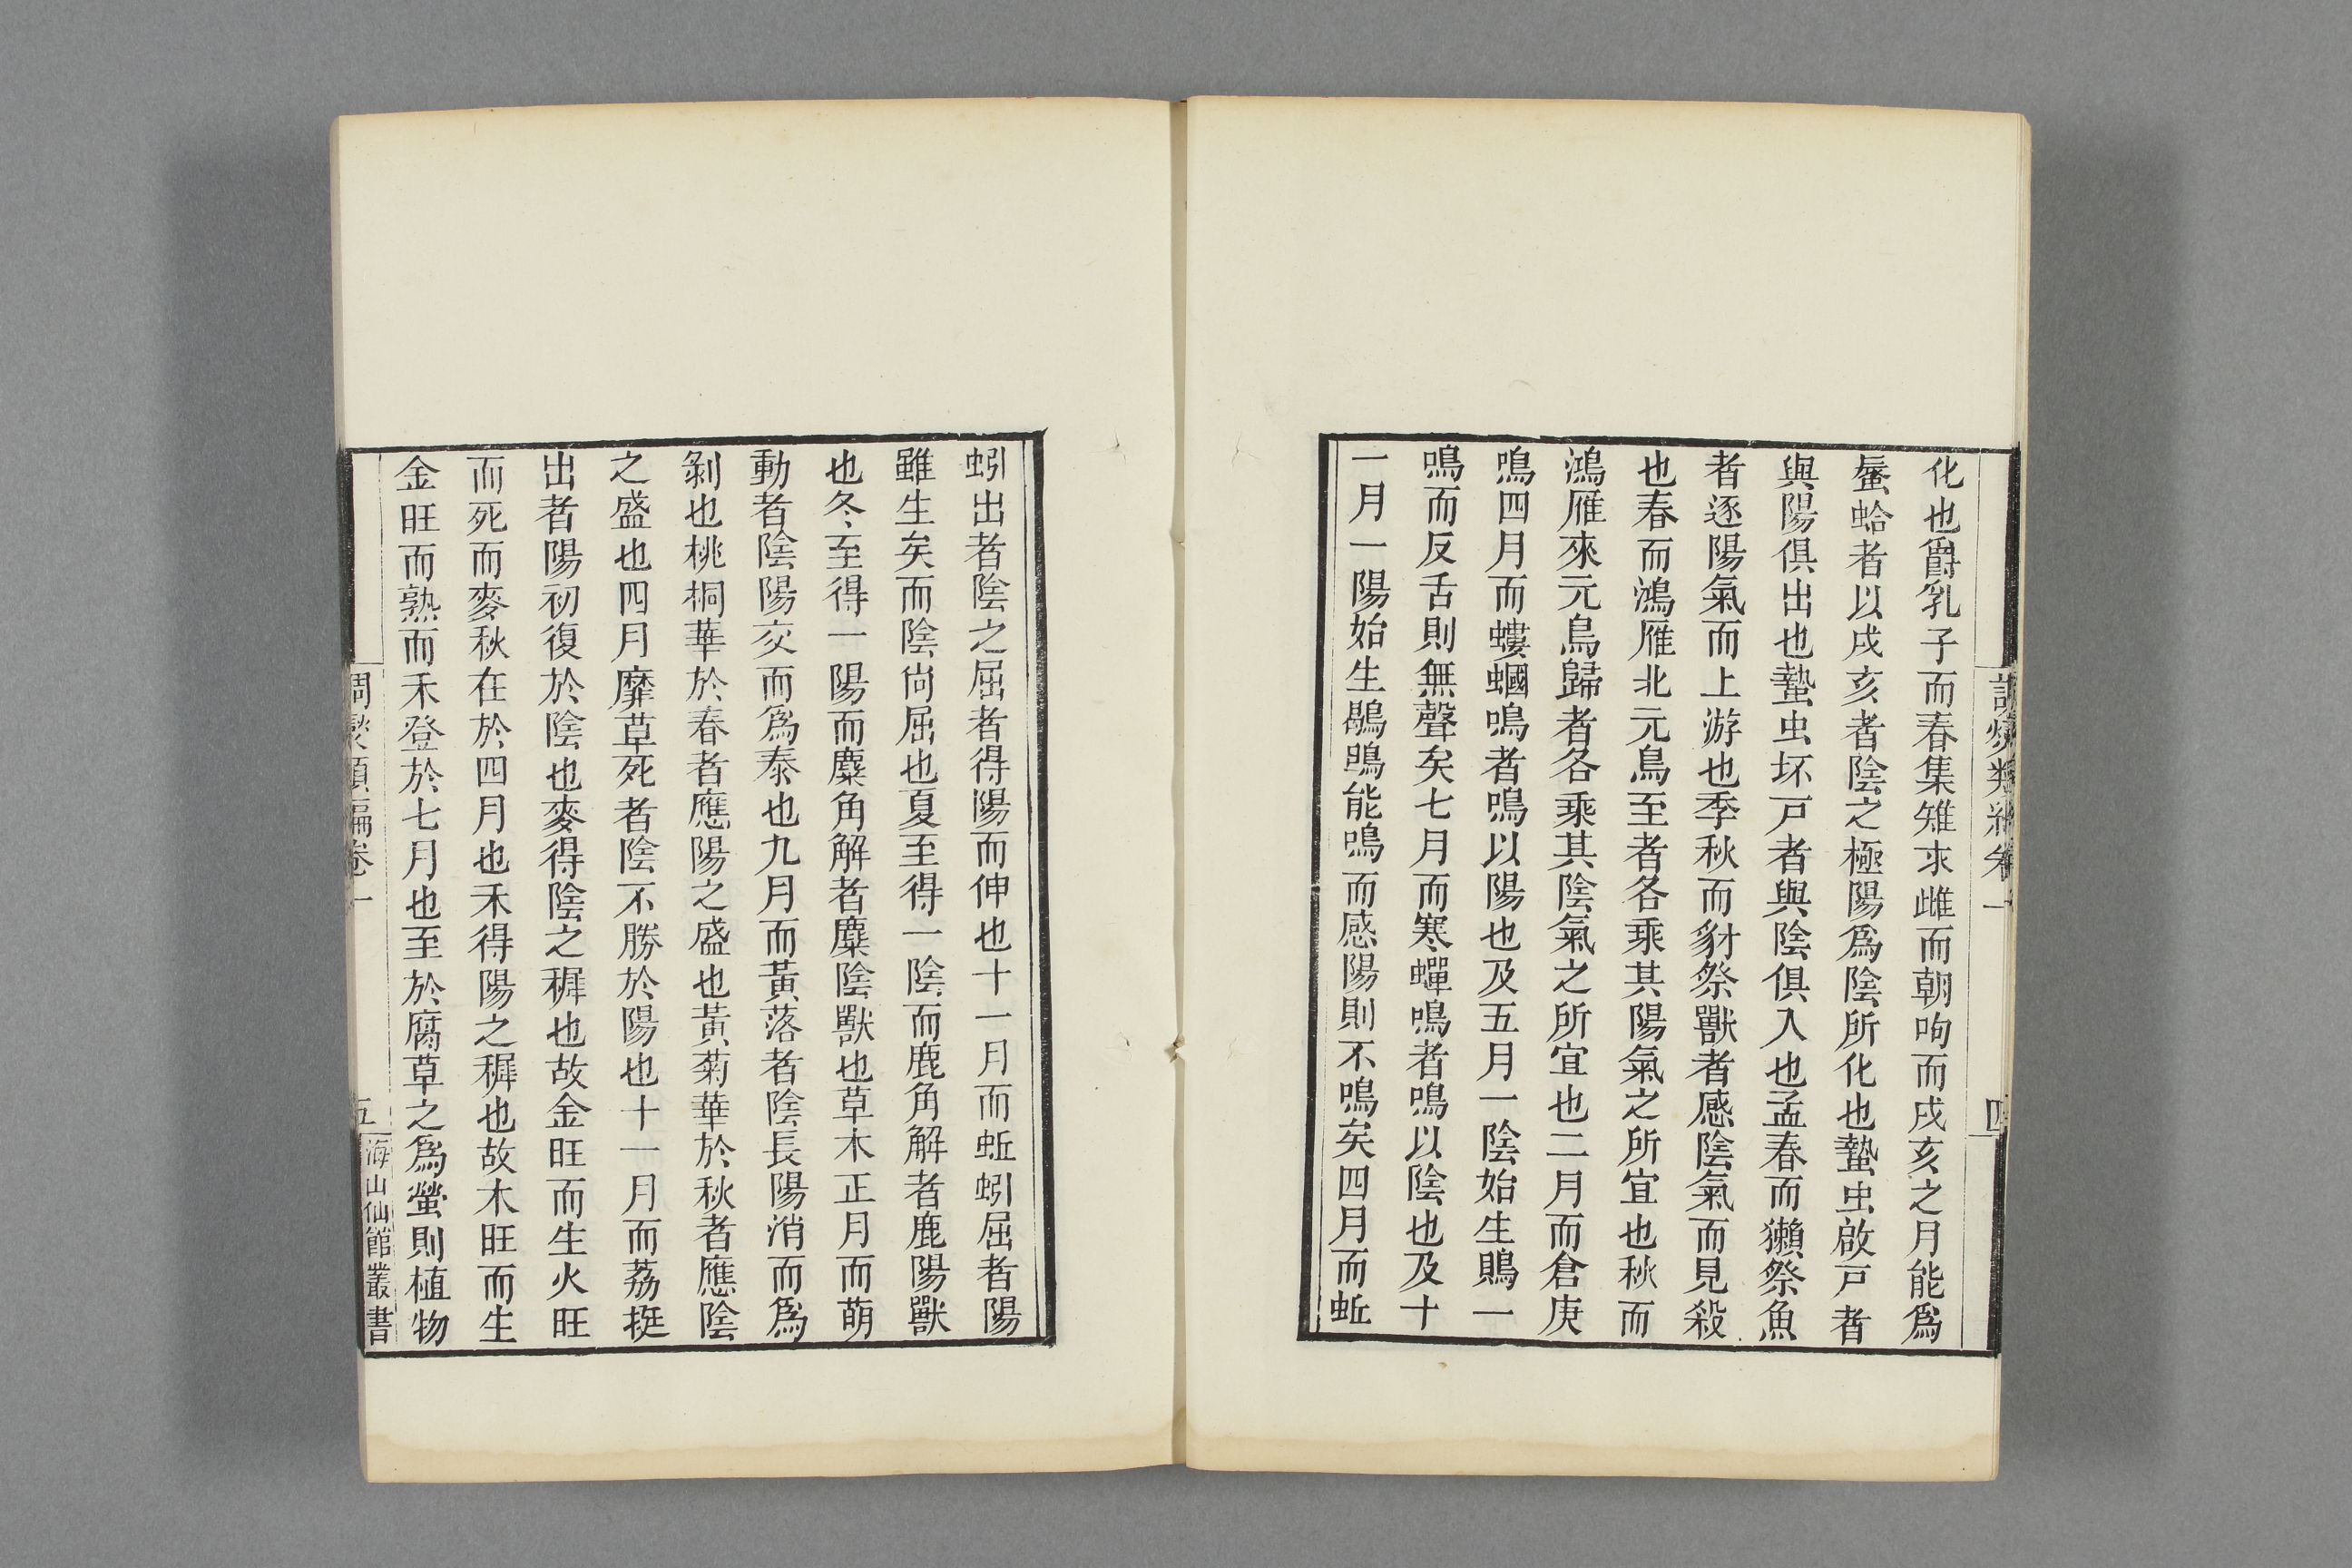 化也爵乳子而春集雉求雌而朝呴而戌亥之月能爲
蜃蛤者以戌亥者陰之極陽爲陰所化也蟄虫啟戸者
與陽俱出也蟄虫坏戸者與陰俱入也孟春而獺祭魚
者逐陽氣而上游也季秋而豺祭獸者感陰氣而見殺
也春而鴻雁北元鳥至者各乘其陽氣之所宜也秋而
鴻雁來元鳥歸者各乘其陰氣之所宜也二月而倉庚
鳴四月而螻蟈鳴者鳴以陽也及五月一陰始生鵙一
鳴而反舌則無聲矣七月而寒蟬鳴者鳴以陰也及十
一月一陽始生鶡鴠能鳴而感陽則不鳴矣四月而蚯
蚓出者陰之屈者得陽而伸也十一月而蚯蚓屈者陽
雖生矣而陰尙屈也夏至得一陰而鹿角解者鹿陽獸
也冬至得一陽而麋角解者麋陰獸也草木正月而萌
動者陰陽交而爲泰也九月而黃落者陰長陽消而爲
剝也桃桐華於春者應陽之盛也黃菊華於秋者應陰
之盛也四月靡草死者陰不勝於陽也十一月而荔挺
出者陽初復於陰也麥得陰之穉也故金旺而生火旺
而死而麥秋在於四月也禾得陽之穉也故木旺而生
金旺而熟而禾登於七月也至於腐草之爲螢則植物
調燮類編卷一
五
海山仙館叢書